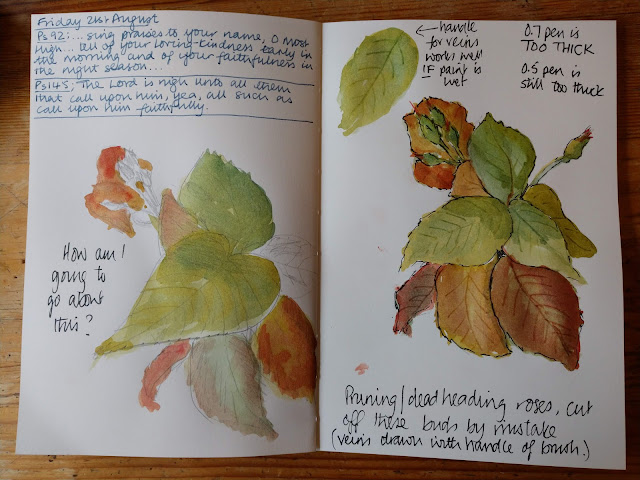 Friday 21st August
Ps 92:... sing praises to your name, O most
High... tell of your loving-kindness early in
the morning and of your faithfulness in
the night season....
Ps 145; The Lord is nigh unto all them
that call upon him, yea, all such as
call upon him faithfully.
How am I
going to
go about
this?
← handle
for veins
works well
IF paint is
wet
0.7 pen is
TOO THICK
0.5 pen is
still too thick
Pruning/deadheading roses, cut
off these buds by mistake
(veins drawn with handle of brush.)